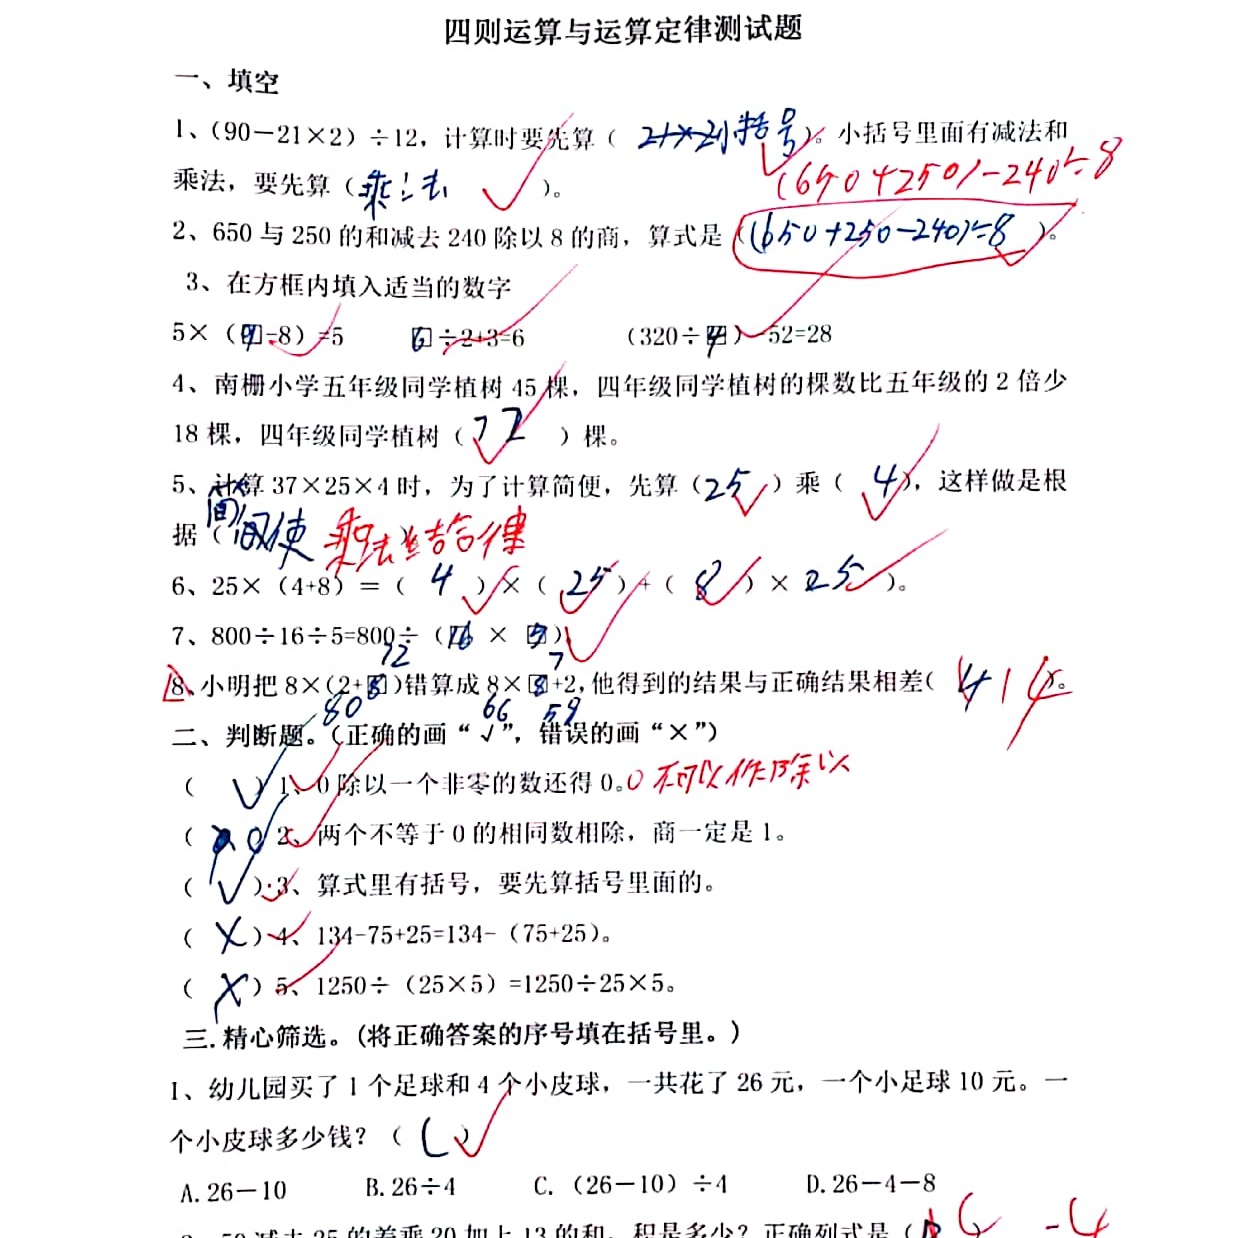 四则运算与运算定律测试题
一、填空
1、（90－21×2）÷12，计算时要先算（ 小括号 ）。小括号里面有减法和
乘法，要先算（乘法 ）。
(650+250)-240÷8
2、650 与 250 的和减去 240 除以 8 的商，算式是（(650+250-240)÷8）。
3、在方框内填入适当的数字
5×（9-8）=5 6÷2+3=6 （320÷4）-52=28
4、南栅小学五年级同学植树 45 棵，四年级同学植树的棵数比五年级的 2 倍少
18 棵，四年级同学植树（72）棵。
5、计算 37×25×4 时，为了计算简便，先算（25）乘（ 4 ），这样做是根
据（简使 乘法结合律
6、25×（4+8）＝（ 4 ）×（ 25 ）+（ 8 ）× 25 ）。
7、800÷16÷5=800÷（16 × 5）
72 7
8、小明把 8×(2+8)错算成 8×8+2，他得到的结果与正确结果相差( 14 )。
80 66 58
二、判断题。（正确的画“√”，错误的画“×”）
（ √ ）1、0 除以一个非零的数还得 0。0不可以作除以
（ ）2、两个不等于 0 的相同数相除，商一定是 1。
（ √ ）3、算式里有括号，要先算括号里面的。
（ × ）4、134-75+25=134-（75+25）。
（ × ）5、1250÷（25×5）=1250÷25×5。
三. 精心筛选。（将正确答案的序号填在括号里。）
1、幼儿园买了 1 个足球和 4 个小皮球，一共花了 26 元，一个小足球 10 元。一
个小皮球多少钱？（ C ）
A. 26－10 B. 26÷4 C.（26－10）÷4 D. 26－4－8
2、50 减去 25 的差乘 20 加上 13 的和，积是多少？正确列式是（ -4